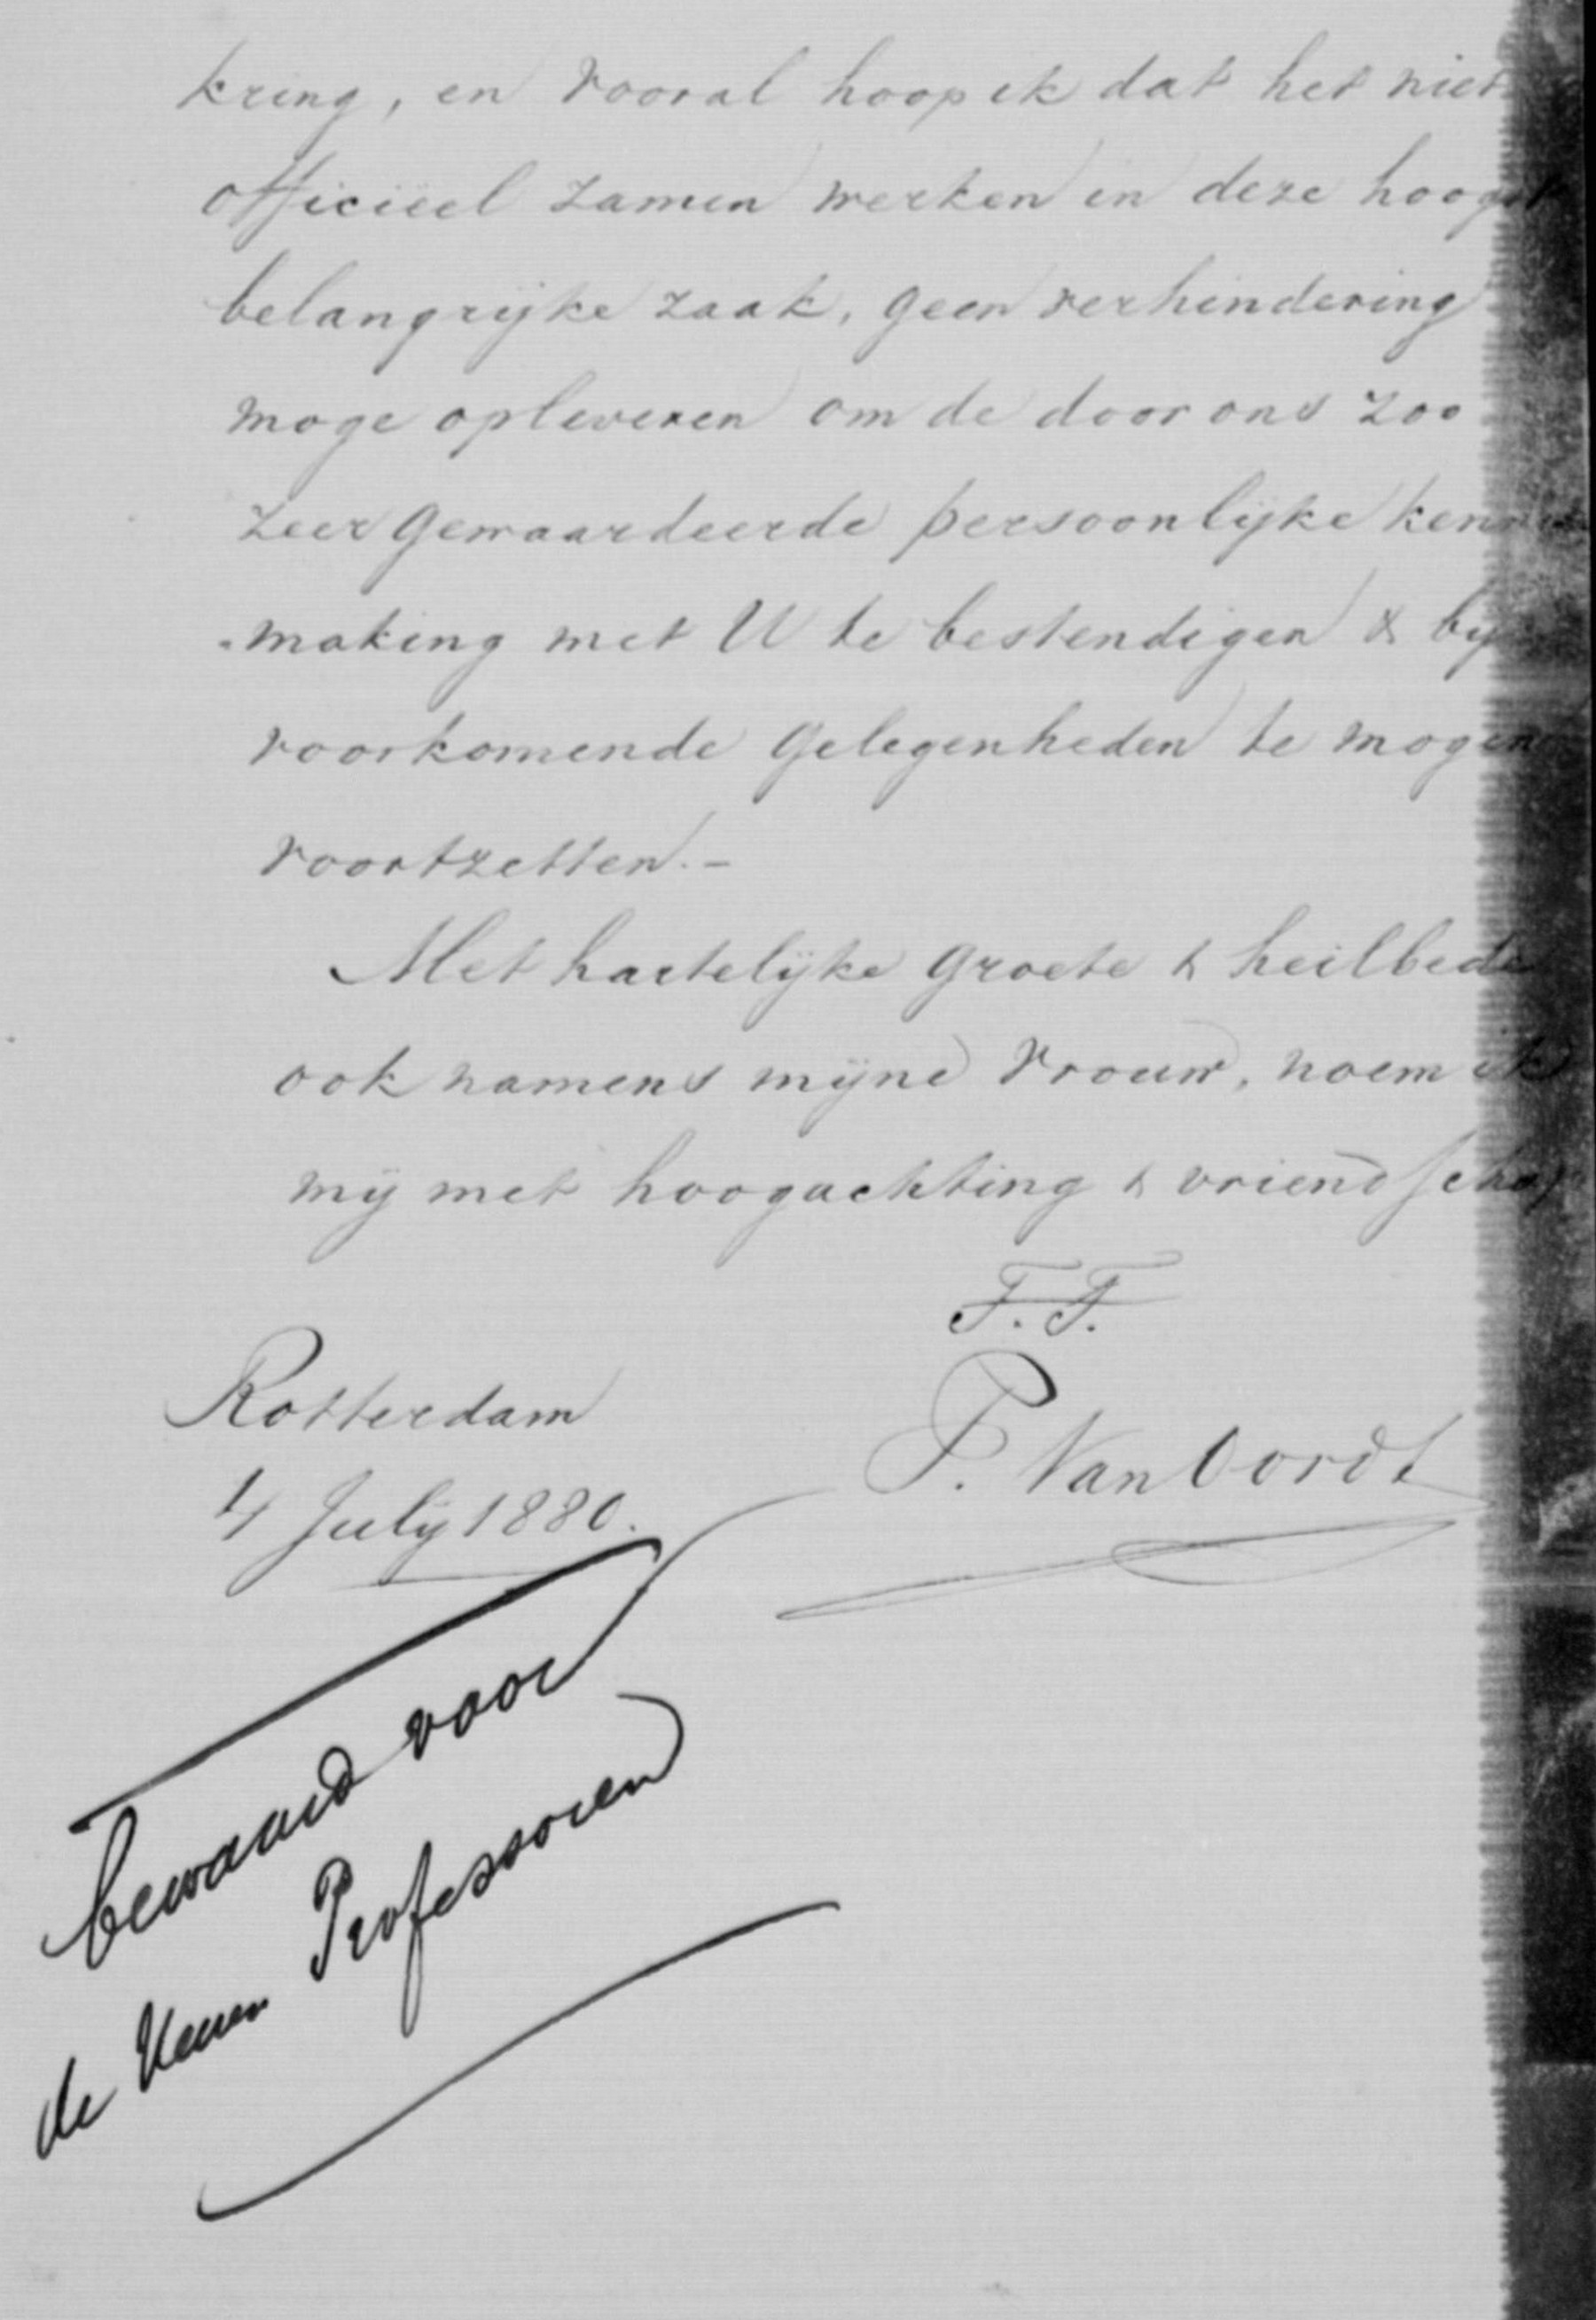 kring, en vooral hoop ik dat het niet
officiëel zamen werken in deze hoogst
belangrijke zaak, geen verhindering
moge opleveren om de door ons zoo
zeer gewaardeerde persoonlijke kennis
-making met U te bestendigen & bij
voorkomende gelegenheden te mogen
voortzetten. -
Met hartelijke groete & heilbede
ook namens mijne vrouw, noem ik
mij met hoogachting & vriendschap
T.T.
P. Van Oordt
Rotterdam
4 July 1880.
bewaard voor
de Heeren Professoren